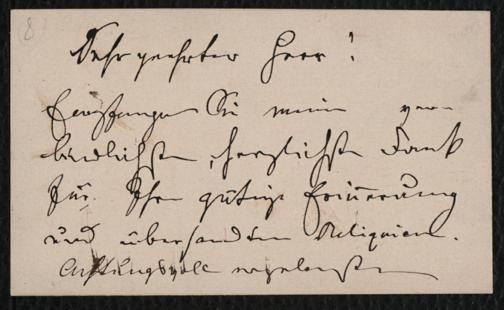 8
Sehr geehrter Herr!
Empfangen Sie meinen ver-
bindlichsten, herzlichsten Dank
für Ihre gütige Erinnerung
und übersandten Reliquien.
Achtungsvoll ergebenst